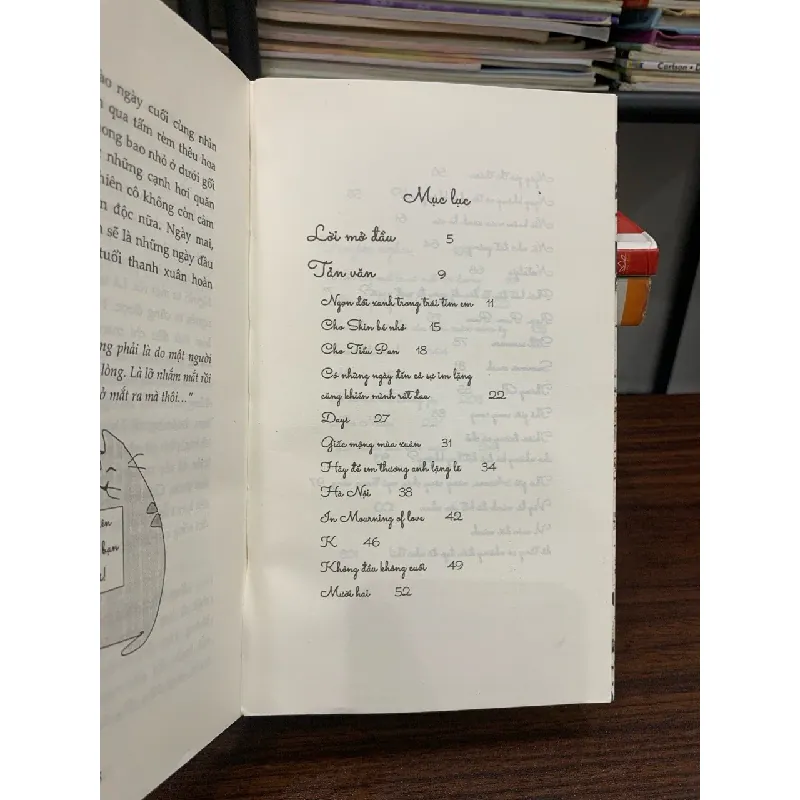 ào ngày cuối cùng nhìn
qua tấm rèm thêu hoa
ong bao nhỏ ở dưới gối
những cạnh hơi quăn
hiên cô không còn cảm
n độc nữa. Ngày mai,
sẽ là những ngày đầu
tuổi thanh xuân hoàn
ng phải là do một người
lòng. Là lỡ nhắm mắt rồi
ở mắt ra mà thôi..."
ên
bạn
Mục lục
Lời mở đầu 5
Tản văn 9
Ngọn đồi xanh trong trái tim em 11
Cho Shin bé nhỏ 15
Cho Tiểu Pan 18
Có những ngày đến cả sự im lặng
cũng khiến mình rất đau 22
Days 27
Giấc mộng mùa xuân 31
Hãy để em thương anh lặng lẽ 34
Hà Nội 38
In Mourning of love 42
K 46
Không đầu không cuối 49
Mười hai 52
Carlson